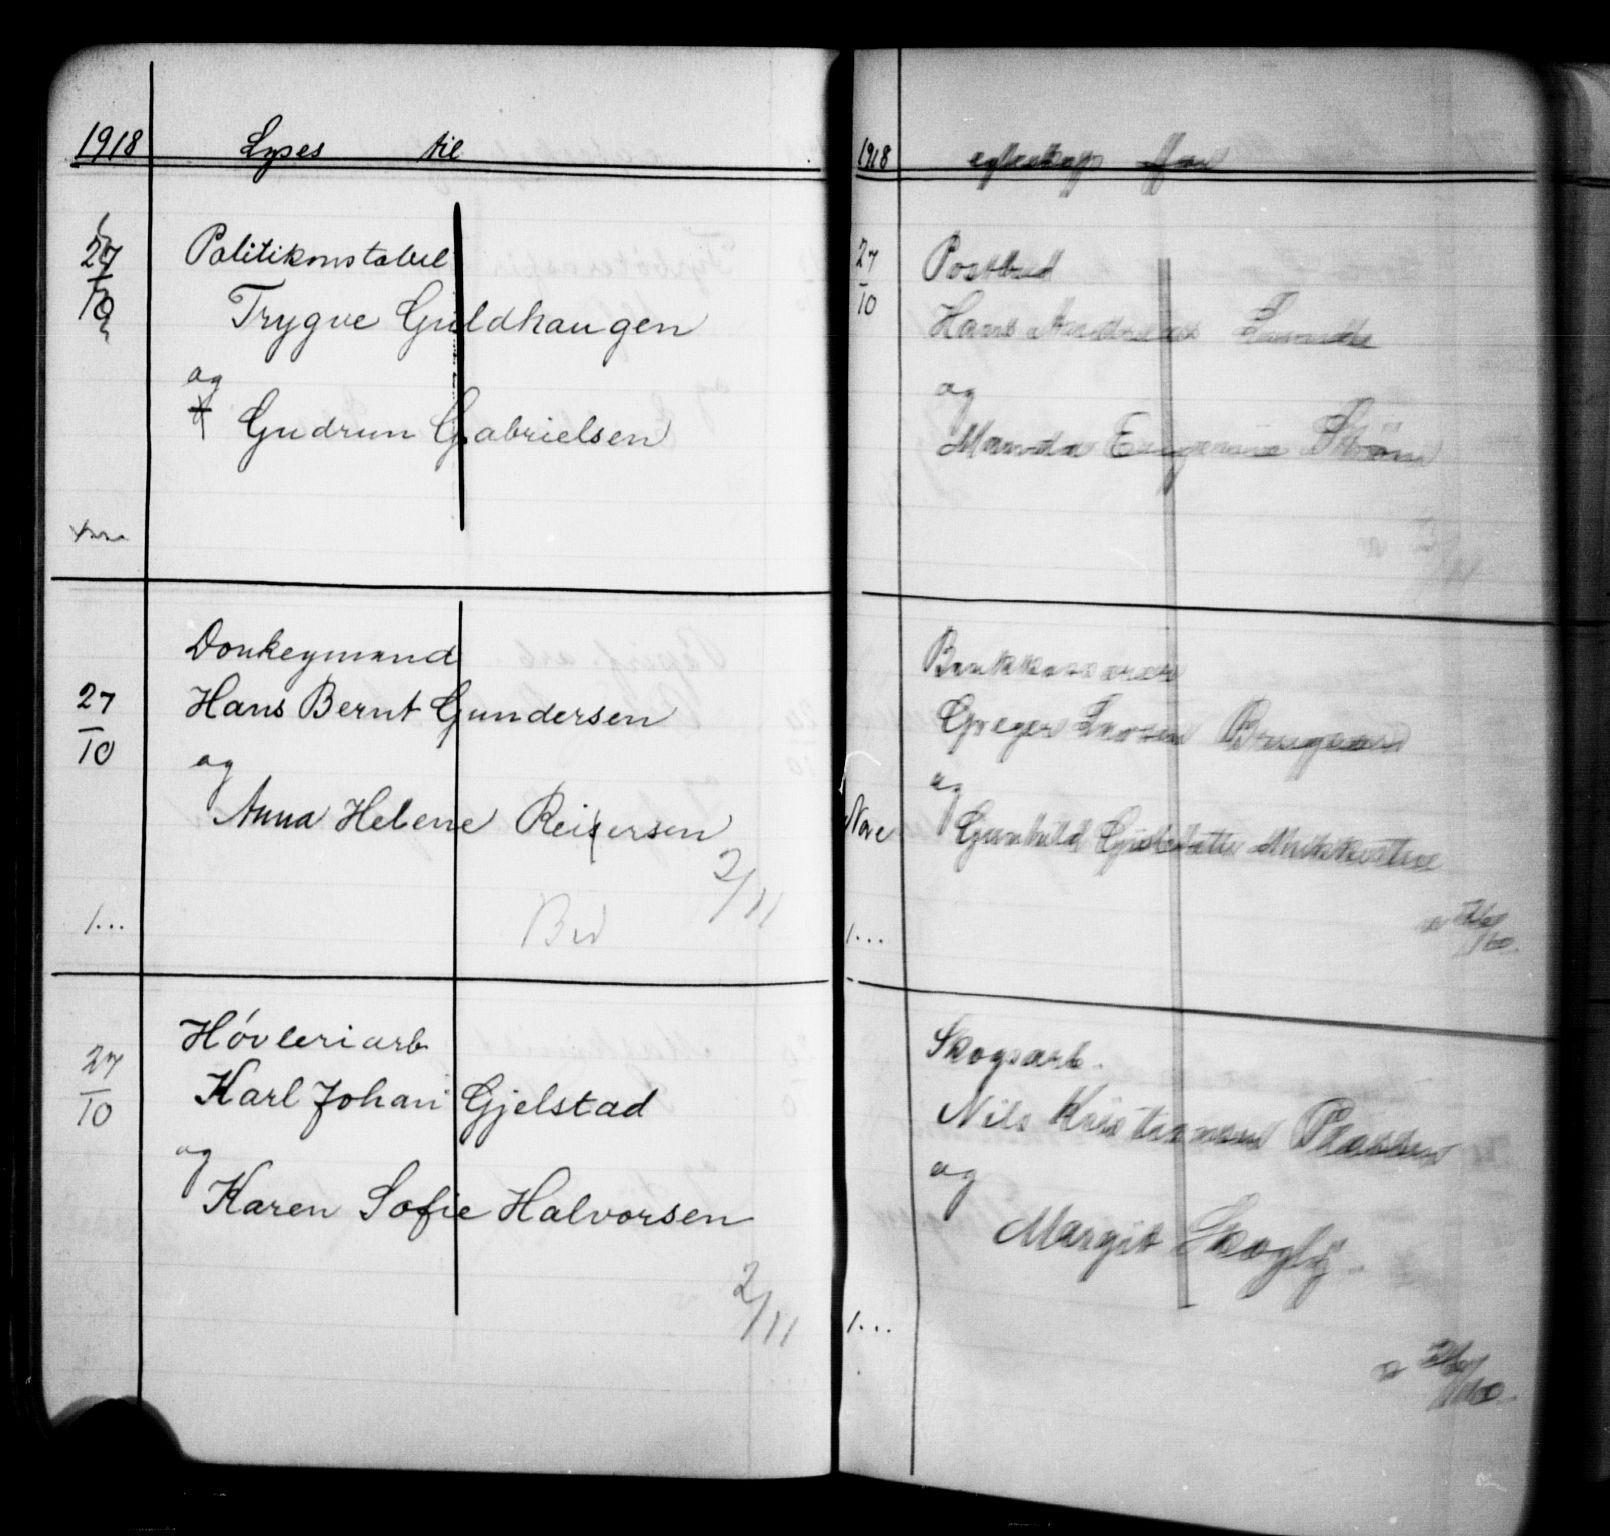 1918 Lyses til
27/10 Politikonstabel
Trygve Guldhaugen
og
Gudrun Gabrielsen
27/10 Donkeymand
Hans Bernt Gundersen
og
Anna Helene Reiersen
2/11
1...
Høvleriarb
27/10 Karl Johan Gjelstad
og
Karen Sofie Halvorsen
2/11
1918 egteskap for
27/10 Postbud
Hans Andreas Lunde
og
Manda Eugenie Strøm
Greger Larsen
og
Nore Gunhild
1...
Skogsarb.
Nils Kristiansen
og
Margit Skogly
1...